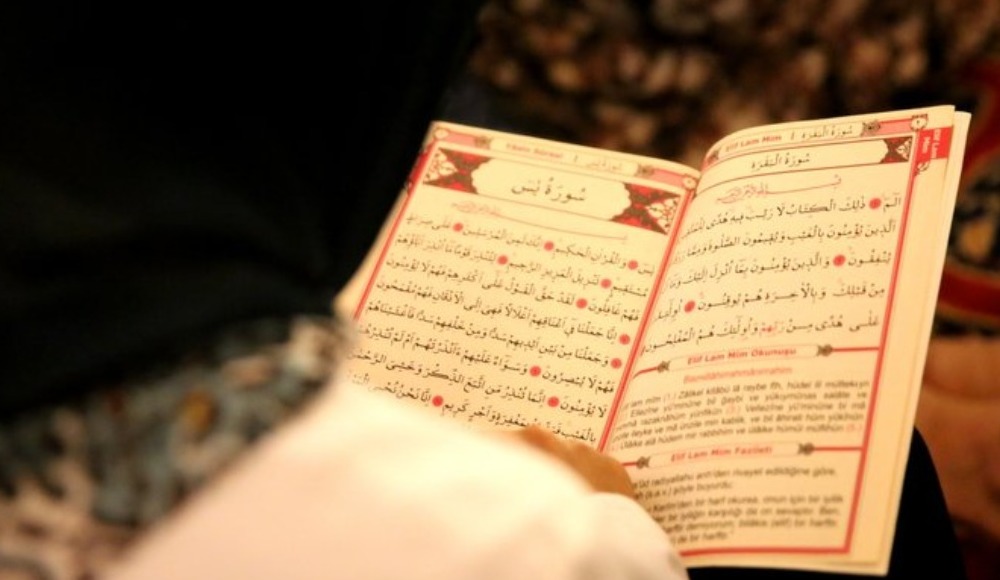 Elif Lam Mim | سُورَةُ الْبَقَرَةِ
Elif Lam Mim
سُورَةُ الْبَقَرَةِ
الٓمٓ ذٰلِكَ الْكِتَابُ لَا رَيْبَ فِيهِ هُدًى
الَّذِينَ يُؤْمِنُونَ بِالْغَيْبِ وَيُقِيمُونَ الصَّلٰوةَ وَمِمَّا
يُنْفِقُونَ وَالَّذِينَ يُؤْمِنُونَ بِمَا أُنْزِلَ إِلَيْكَ وَمَا
مِنْ قَبْلِكَ وَبِالْاٰخِرَةِ هُمْ يُوقِنُونَ أُولٰئِكَ
عَلٰى هُدًى مِنْ رَبِّهِمْ وَأُولٰئِكَ هُمُ الْمُفْلِحُونَ
Elif Lam Mim Okunuşu
Bismillâhirrahmânirrahîm
lam mim (1.) Zâlikel kitâbü lâ raybe fîh, hüdel lil müttekiyn
Ellezîne yü'minûne bil gaybi ve yükıymûnes salâte ve
razaknâhüm yünfikûn (3.) Vellezîne yü'minûne bi mâ
ileyke ve mâ ünzile min kablik, ve bil âhireti hüm yûkinûn
Ülâike alâ hüdem mir rabbihim ve ülâike hümül müflihûn (5.)
Elif Lam Mim Fazileti
radıyallahu anh'den rivayet edildiğine göre,
(s.a.v.) şöyle buyurdu:
bir harf okursa, onun için bir iyilik
bir iyiliğin karşılığı da on sevaptır. Ben,
harftir demiyorum; bilakis (elif) bir harftir,
de bir harftir."
سُورَةُ يٰسٓ
سُورَةُ يٰسٓ
يٰسٓ وَالْقُرْاٰنِ الْحَكِيمِ إِنَّكَ لَمِنَ الْمُرْسَلِينَ عَلٰى صِرَاطٍ
مُسْتَقِيمٍ تَنْزِيلَ الْعَزِيزِ الرَّحِيمِ لِتُنْذِرَ قَوْمًا مَا أُنْذِرَ اٰبَاؤُهُمْ
فَهُمْ غَافِلُونَ لَقَدْ حَقَّ الْقَوْلُ عَلٰى أَكْثَرِهِمْ فَهُمْ لَا يُؤْمِنُونَ
إِنَّا جَعَلْنَا فِي أَعْنَاقِهِمْ أَغْلَالًا فَهِيَ إِلَى الْأَذْقَانِ فَهُمْ مُقْمَحُونَ
وَجَعَلْنَا مِنْ بَيْنِ أَيْدِيهِمْ سَدًّا وَمِنْ خَلْفِهِمْ سَدًّا فَأَغْشَيْنَاهُمْ
فَهُمْ لَا يُبْصِرُونَ وَسَوَاءٌ عَلَيْهِمْ ءَأَنْذَرْتَهُمْ أَمْ لَمْ تُنْذِرْهُمْ
لَا يُؤْمِنُونَ إِنَّمَا تُنْذِرُ مَنِ اتَّبَعَ الذِّكْرَ وَخَشِيَ الرَّحْمٰنَ
بِالْغَيْبِ فَبَشِّرْهُ بِمَغْفِرَةٍ وَأَجْرٍ كَرِيمٍ إِنَّا نَحْنُ نُحْيِ